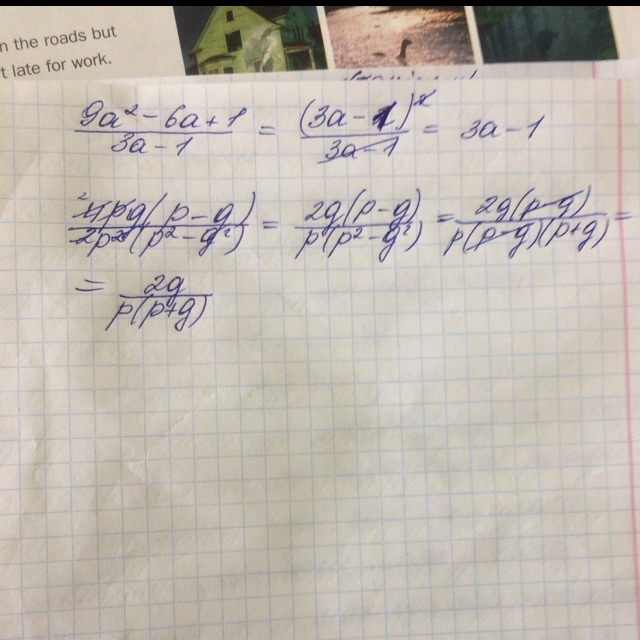 n the roads but
t late for work.
9a² - 6a + 1 / 3a - 1 = (3a - 1)² / 3a - 1 = 3a - 1
4pg(p - g) / 2p²(p² - g²) = 2g(p - g) / p(p² - g²) = 2g(p - g) / p(p - g)(p + g) =
= 2g / p(p + g)